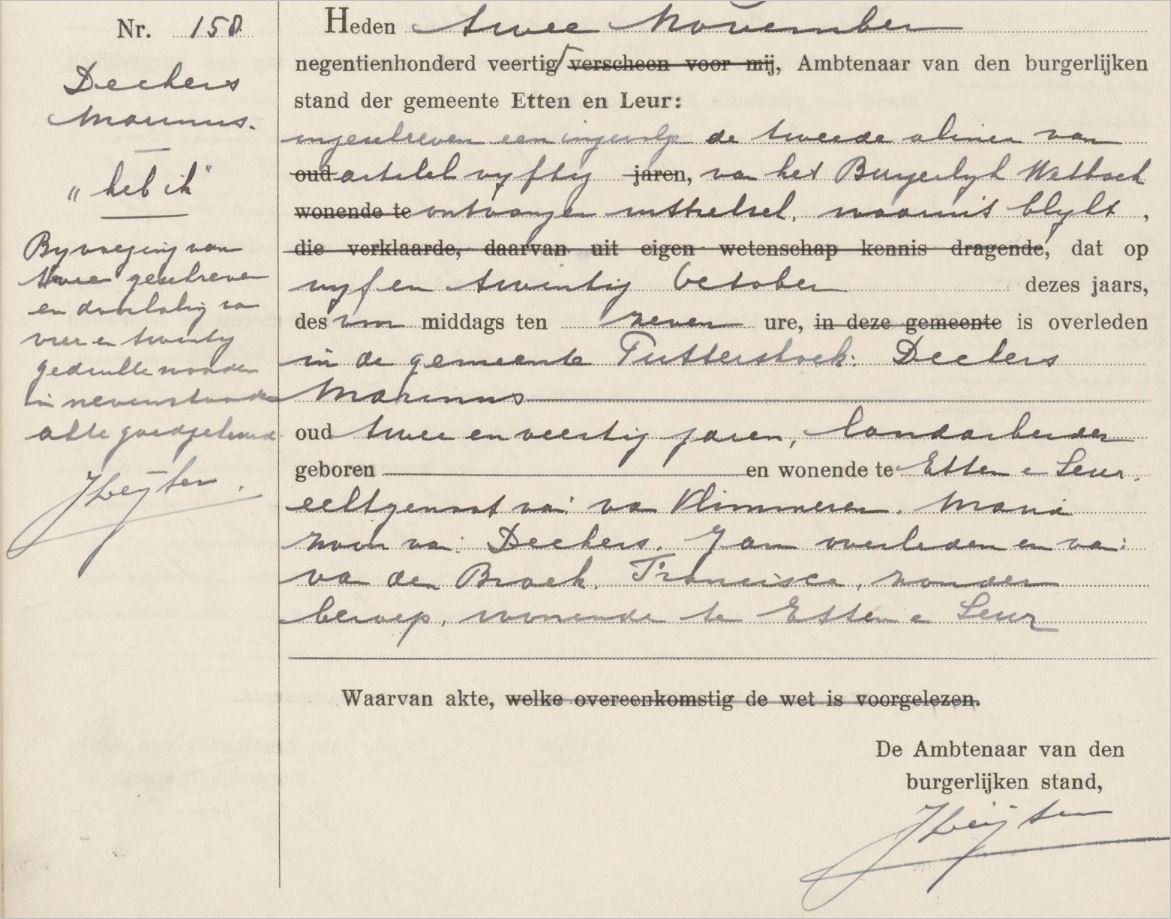 Nr. 158
Deckers
Marinus.
"heb ik"
Byvoeging van
twee geschreven
en doorhaling van
vier en twintig
gedrukte woorden
in nevenstaande
akte goedgekeurd
Heden twee November
negentienhonderd veertig verscheen voor mij, Ambtenaar van den burgerlijken
stand der gemeente Etten en Leur:
ingeschreven een ingevolge de tweede alinea van
oud artikel vyftig jaren, van het Burgerlyk Wetboek
wonende te ontvangen uittreksel, waaruit blykt,
die verklaarde, daarvan uit eigen wetenschap kennis dragende, dat op
vyf en twintig October dezes jaars,
des voor middags ten zeven ure, in deze gemeente is overleden
in de gemeente Puttershoek: Deckers
Marinus
oud twee en veertig jaren, landarbeider
geboren en wonende te Etten e Leur,
echtgenoot van: van Klimmeren. Maria
zoon van: Deckers. Jan overleden en van:
van den Broek. Francisca, zonder
beroep, wonende te Etten e Leur
Waarvan akte, welke overeenkomstig de wet is voorgelezen.
De Ambtenaar van den
burgerlijken stand,